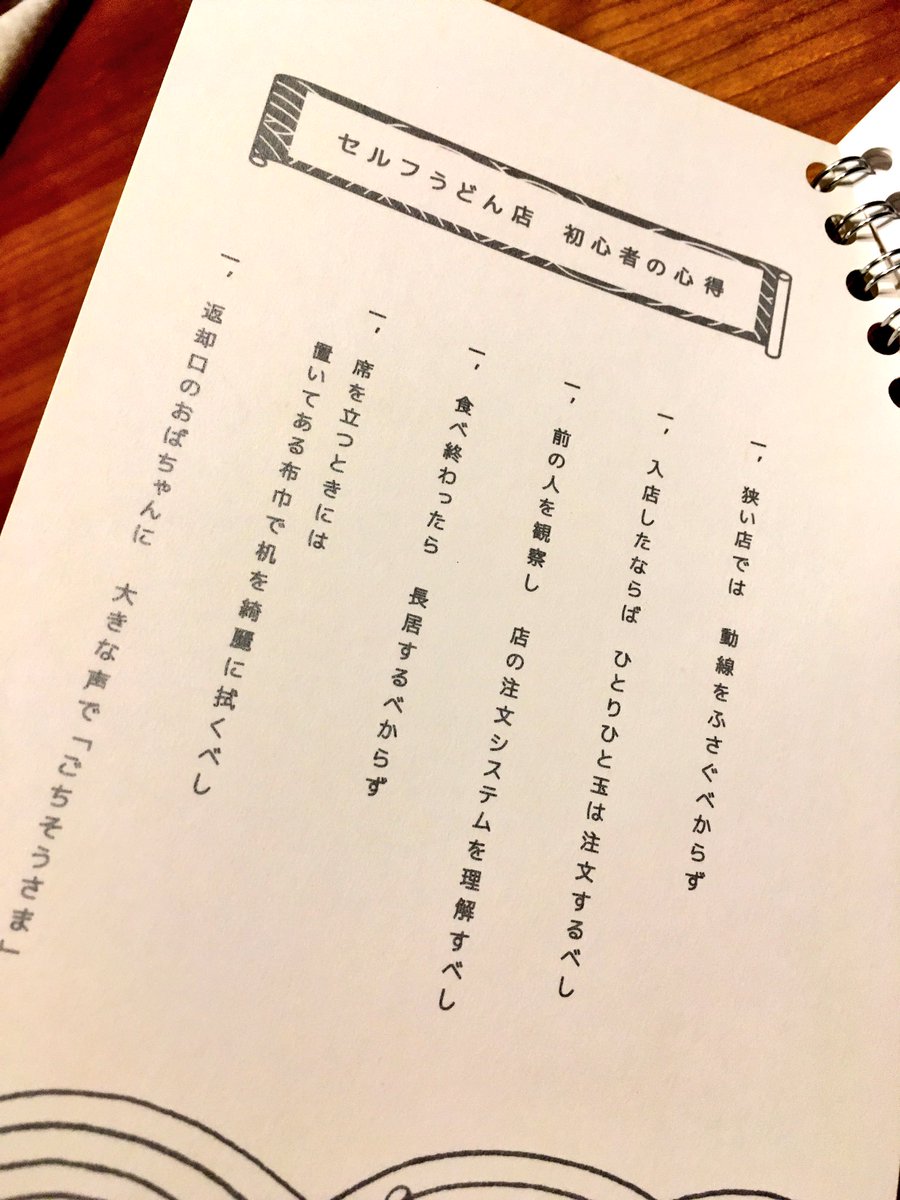 セルフうどん店 初心者の心得
一, 狭い店では 動線をふさぐべからず
一, 入店したならば ひとりひと玉は注文するべし
一, 前の人を観察し 店の注文システムを理解すべし
一, 食べ終わったら 長居するべからず
一, 席を立つときには
置いてある布巾で机を綺麗に拭くべし
一, 返却口のおばちゃんに 大きな声で「ごちそうさま」